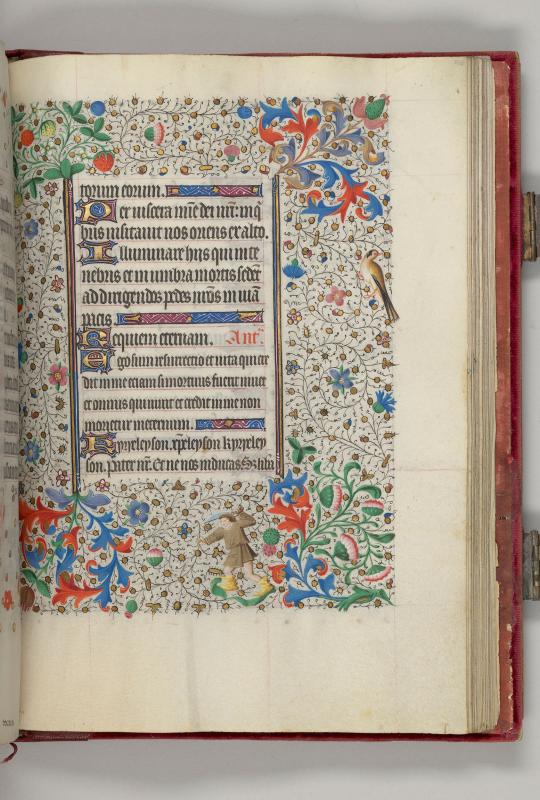 torum eorum.
Per uiscera mie dei nri: in q
bus uisitauit nos oriens ex alto.
Illuminare hys qui in te
nebris et in umbra mortis sedet
ad dirigendos pedes nros in uia
pacis.
Requiem eternam. Ant.
Ego sum resurrectio et uita qui cre
dit in me eciam si mortuus fuerit uiuet
et omnis qui uiuit et credit in me non
morietur in eternum.
Kyryeleyson. xpeleyson kyryeley
son. Pater nr. Et ne nos inducas. Sed libera